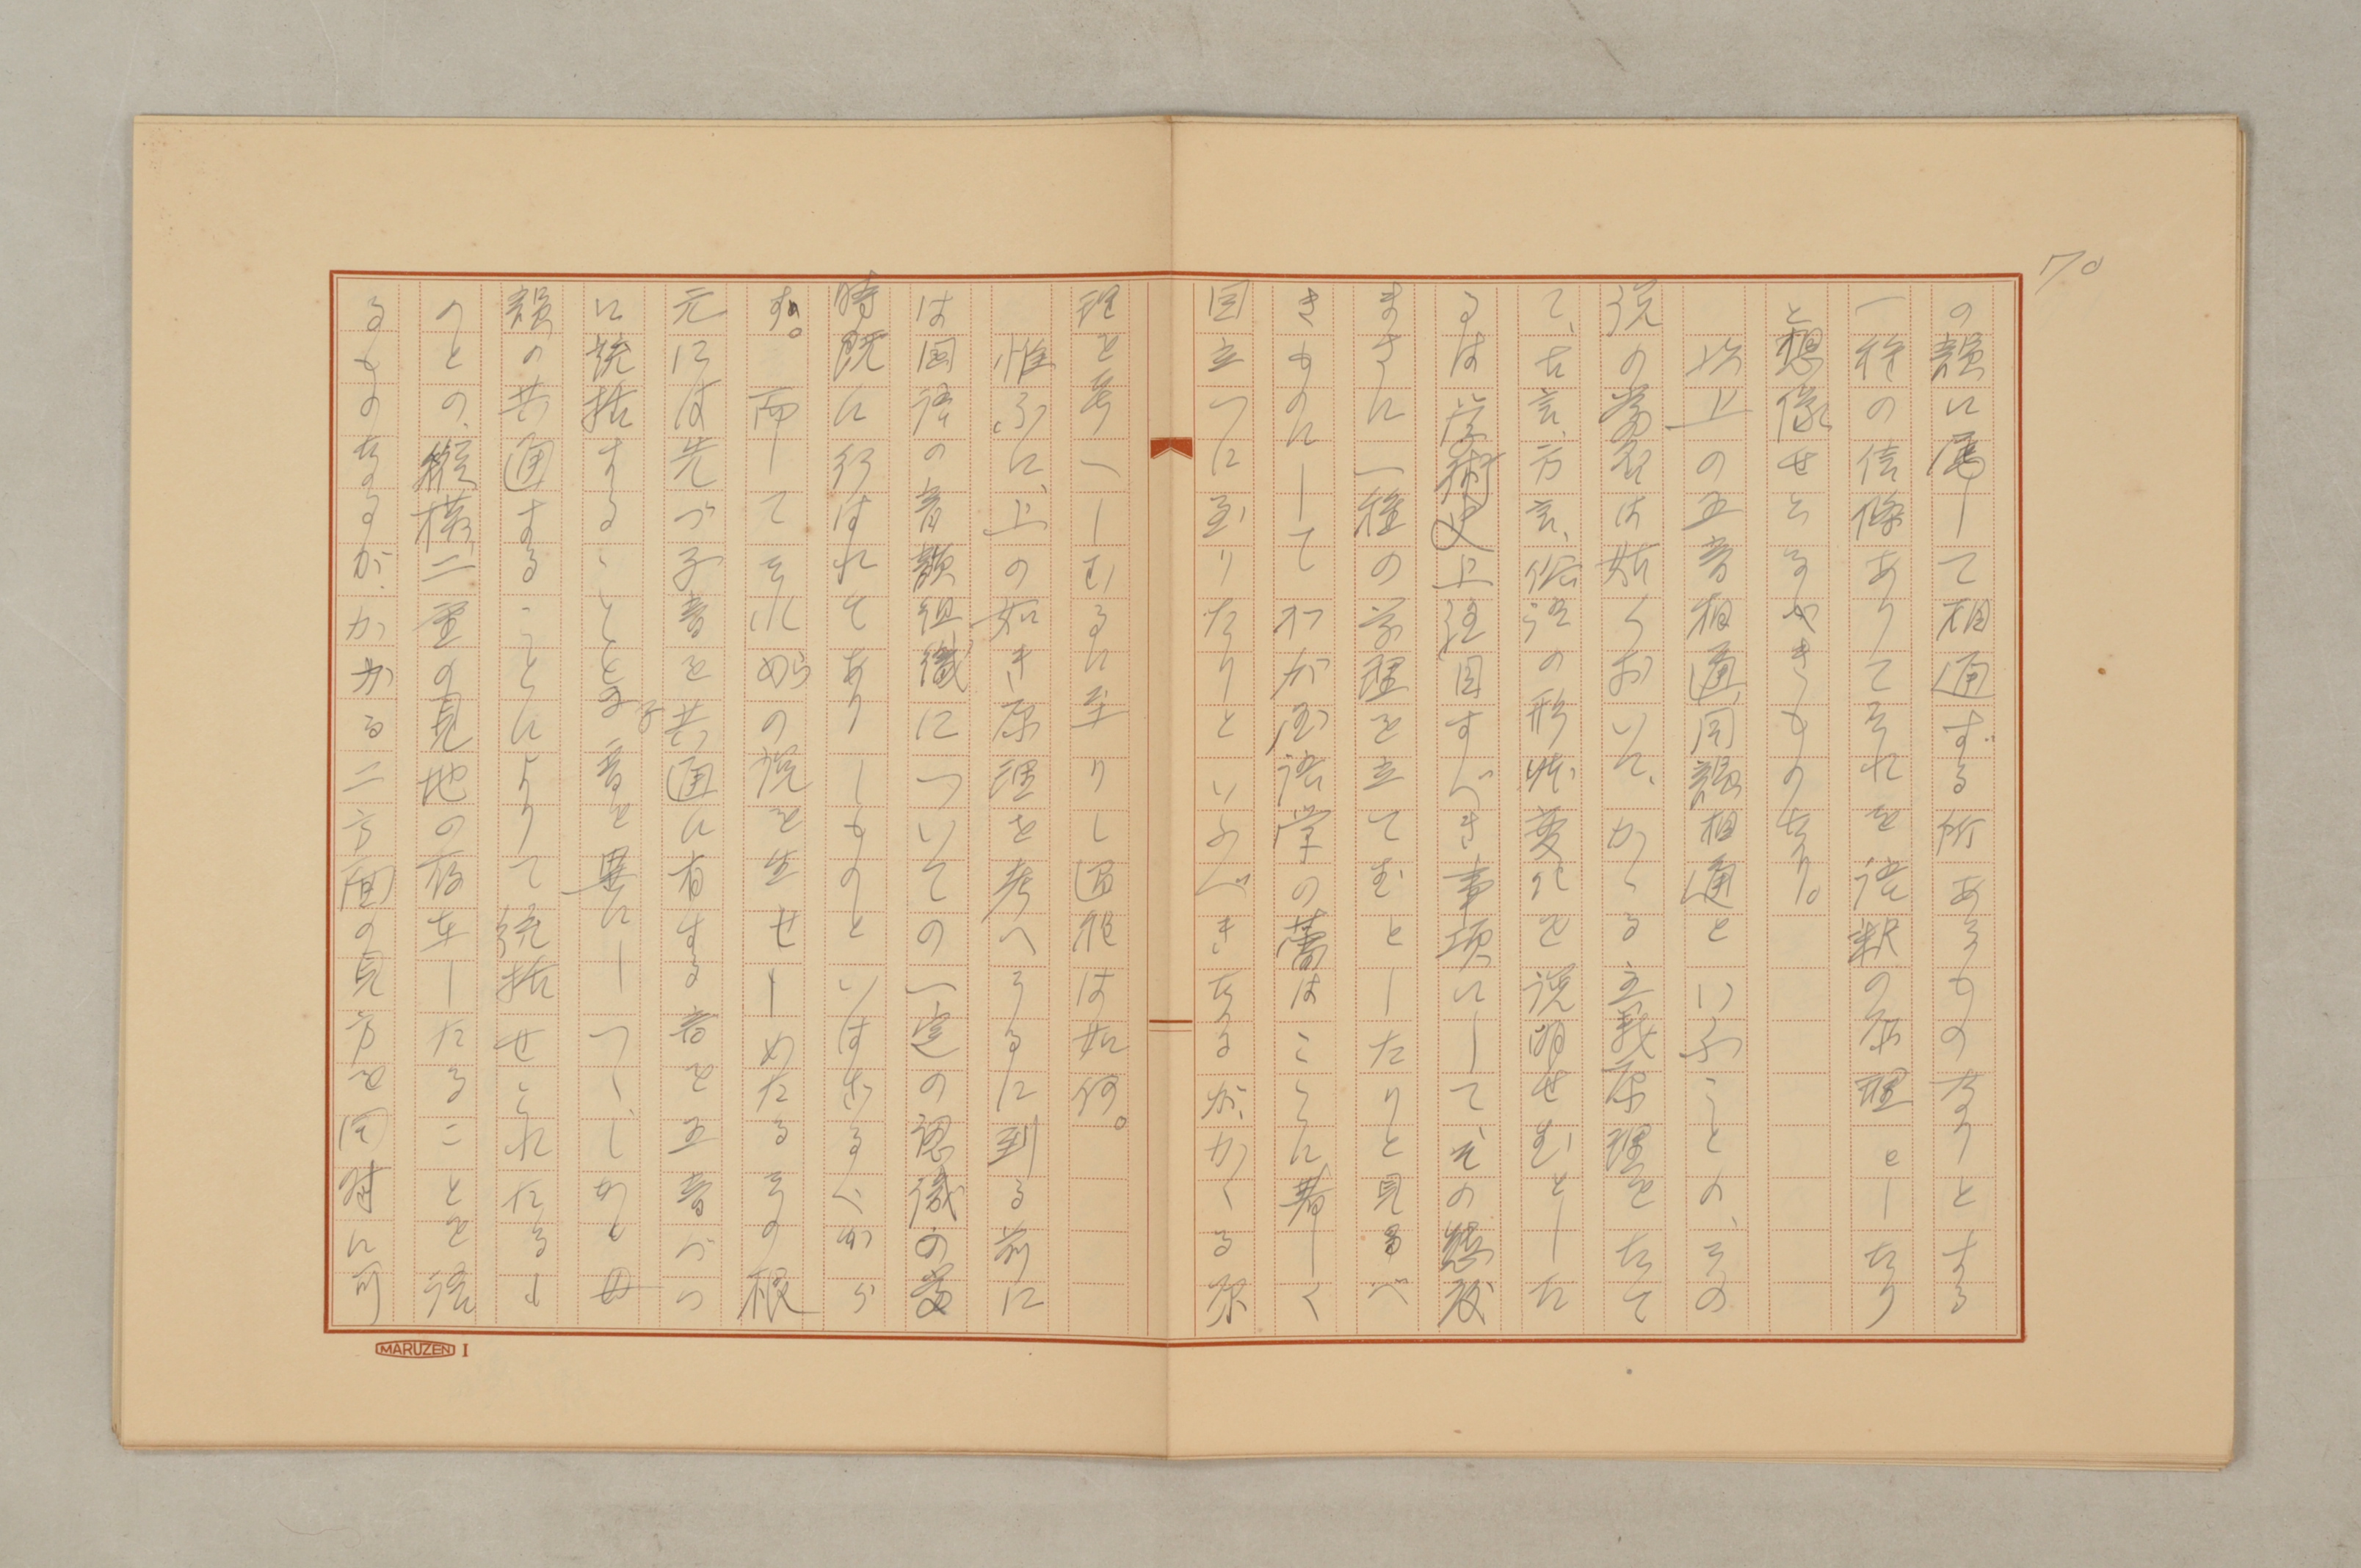 70
の韻に属して相通ずる所あるものなりとする
一種の信條ありてそれを語釈の原理としたり
と想像せらるべきものなり。
以上の五音相通同韻相通といふことの、その
説の当否は姑くおいて、かゝる主義原理をたて
て、古言、方言、俗語の形状変化を説明せむとした
るは学術史上注目すべき事項にして、その態度
まさに一種の学理を立てむとしたりと見るべ
きものにしてわが国語学の萠はこゝに著しく
目立つに至りたりといふべきなるが、かくる原
理を考へしむるに至りし過程は如何。
惟ふに、上の如き原理を考へうるに到る前に
は国語の音韻組織についての一定の認識の萠
時既に行はれてありしものといはざるべから
ず。而してそれらの説を生ぜしめたるその根
元には先づ子音を共通に有する音を五音づつ
に統括することと子音を異にしつゝ、しかも母
韻の共通することによりて統括せられたるも
のとの、縦横二重の見地の存在したることを語
るものなるが、かかる二方面の見方を同時に可
MARUZEN I